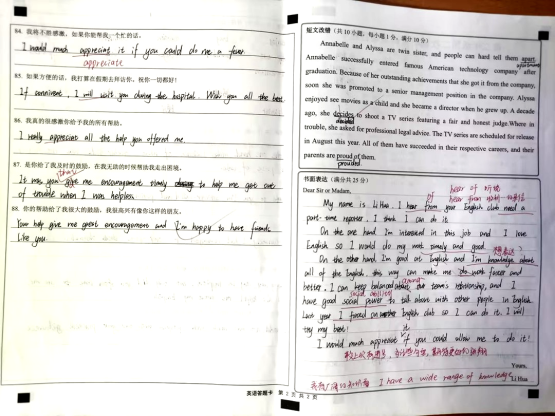 84. 我将不胜感激，如果你能帮我一个忙的话。
I would much appreciat it if you could do me a favor.
appreciate
85. 如果方便的话，我打算在假期去拜访你，祝你一切都好！
If convinient, I will visit you during the hospital. Wish you all the best.
86. 我真的很感激你给予我的所有帮助。
I really appreciat all the help you offered me.
87. 是你给了我及时的鼓励，在我无助的时候帮助我走出困境。
that
It was you give me encouragement timely to help me get out
of trouble when I was helpless.
88. 你的帮助给了我很大的鼓励，我很高兴有像你这样的朋友。
Your help give me great encouragement and I'm happy to have friends
like you.
短文改错（共 10 小题，每小题 1 分，满分 10 分）
Annabelle and Alyssa are twin sister, and people can hard tell them apart.
Annabelle successfully entered famous American technology company after
graduation. Because of her outstanding achievements that she got it from the company,
soon she was promoted to a senior management position in the company. Alyssa
enjoyed see movies as a child and she became a director when she grew up. A decade
ago, she decides to shoot a TV series featuring a fair and honest judge. Where in
decided
trouble, she asked for professional legal advice. The TV series are scheduled for release
in August this year. All of them have succeeded in their respective careers, and their
parents are proud of them.
书面表达（满分 25 分）
Dear Sir or Madam,
hear of 听说
of
My name is Li Hua. I hear from your English club need a
part-time reporter. I think I can do it.
On the one hand I'm interested in this job and I love
English so I would do my work timely and good.
On the other hand I'm good at English and I'm knowledge about
all of the English, this way can make me do work faster and
better. I can keep balanced about our team's relationship, and I
have good social power to talk about with other people in English.
Last year I forced on another English club so I can do it. I will
try my best!
it
I would much appreciate if you could allow me to do it!
Yours,
I have a wide range of knowledge
Li Hua
英语答题卡 第 2 页 共 2 页